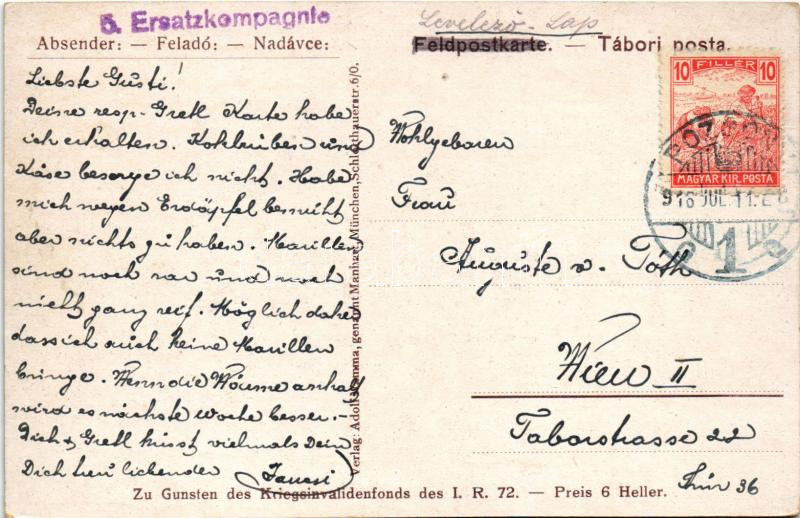 5. Ersatzkompagnie
Levelező-Lap
Absender: — Feladó: — Nadávce:
Feldpostkarte. — Tábori posta.
Liebste Gusti!
Deine resp. Gretl Karte habe
ich erhalten. Kohlrüben und
Käse besorge ich nicht. Habe
mich wegen Erdäpfel bemüht
aber nichts zu haben. Marillen
sind noch rar und noch
nicht ganz reif. Möglich daher
dass ich auch keine Marillen
bringe. Wenn die Wärme anhält
wird es nächste Woche besser. –
Dich & Gretl küsst vielmals Dein
Dich treu liebender Jancsi
Verlag: Adolf Mamma, genannt Manhart, München, Schlotthauerstr. 6/0.
10 FILLÉR 10
MAGYAR KIR. POSTA
POZSONY
918 JUL. 11.
1
Wohlgeboren
Frau
Auguste v. Tóth
Wien II
Taborstrasse 22
Thür 36
Zu Gunsten des Kriegsinvalidenfonds des I. R. 72. — Preis 6 Heller.